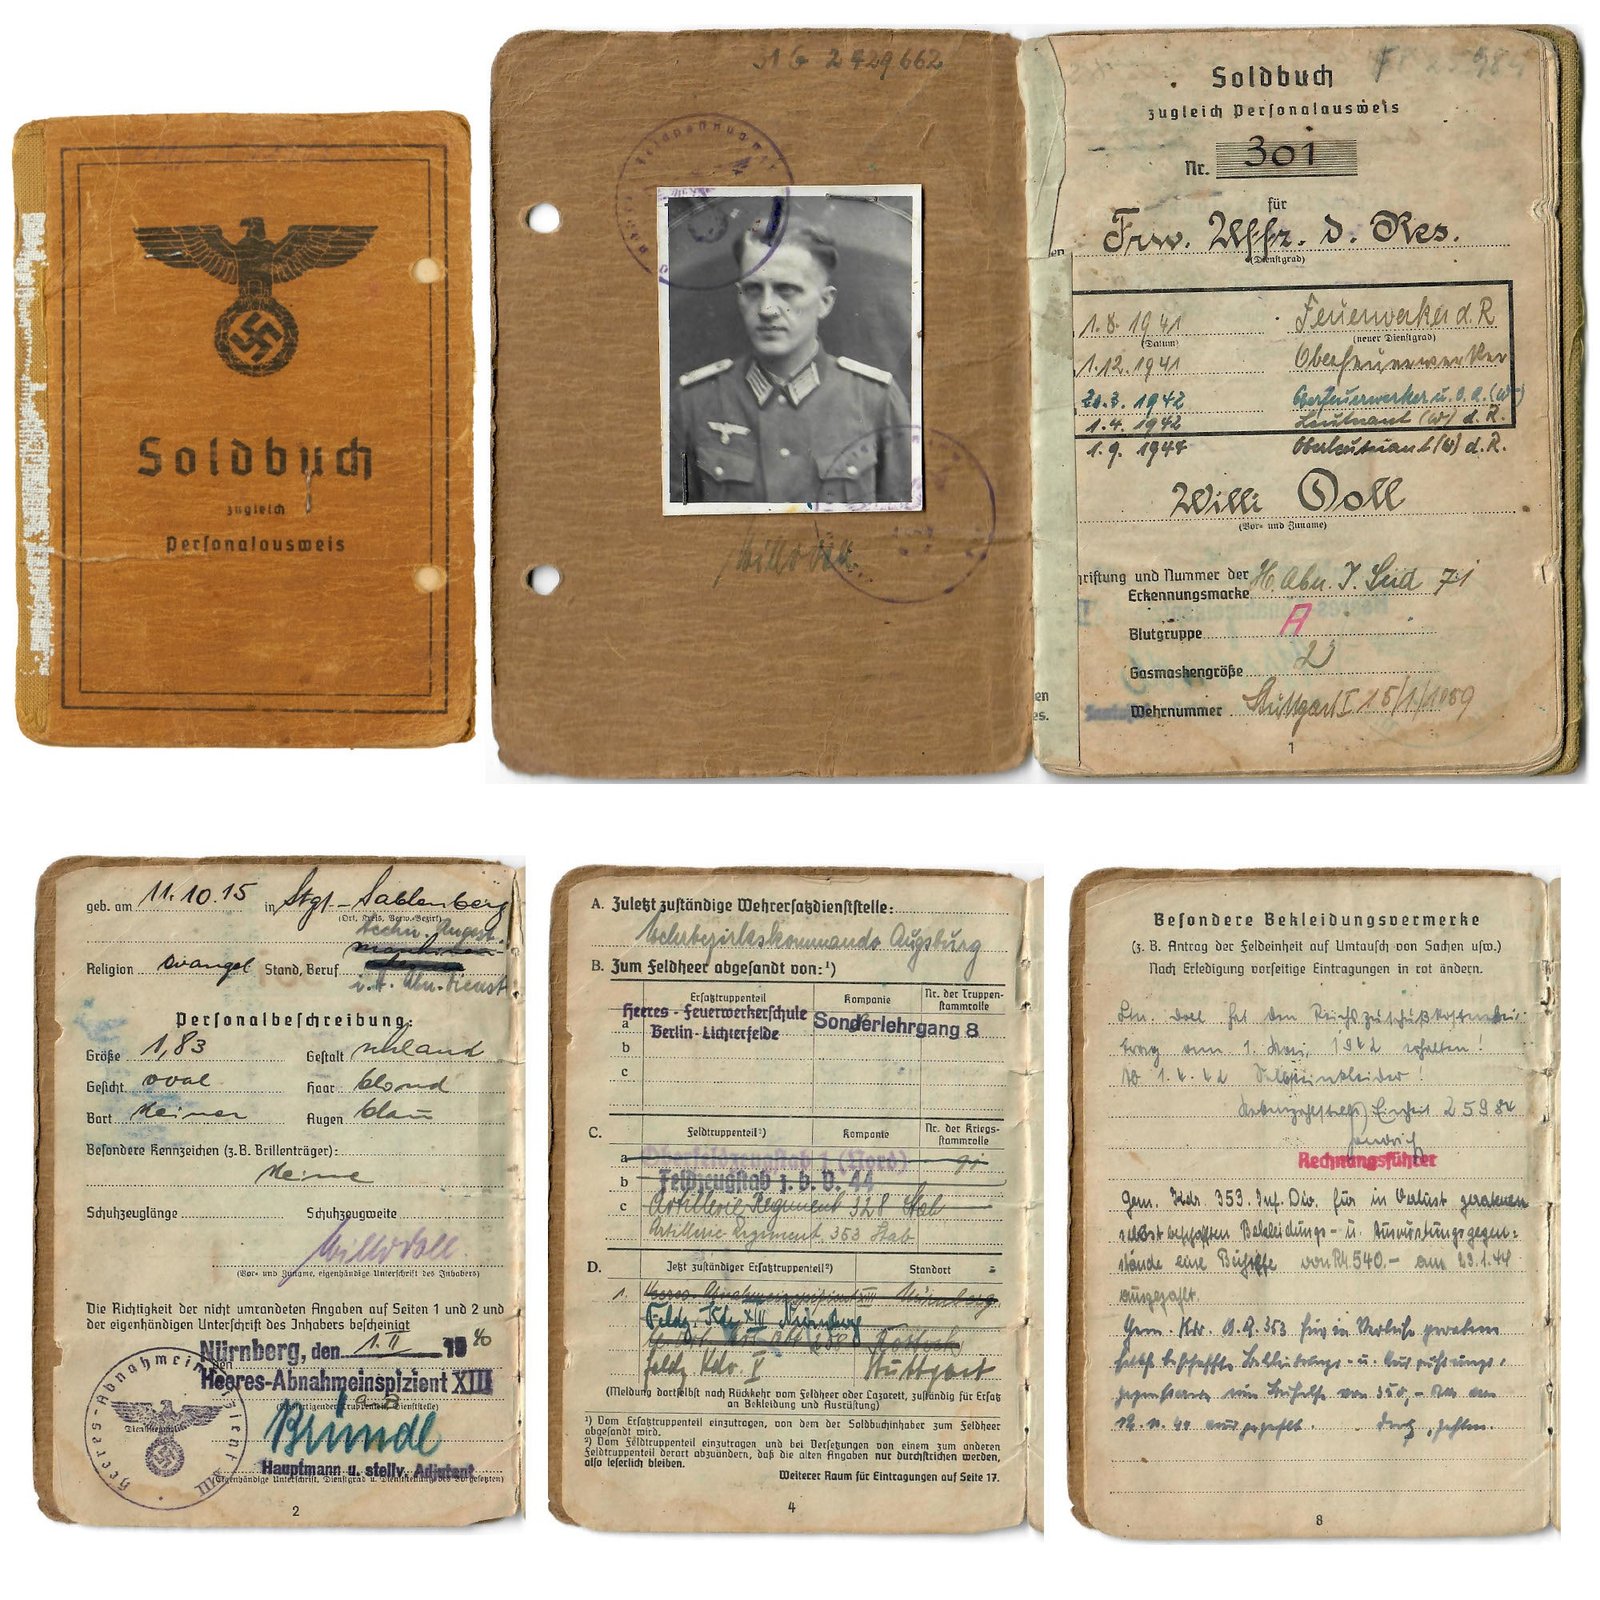 Soldbuch
zugleich
Personalausweis
2429662
Willi Doll
Soldbuch
zugleich Personalausweis
Nr. 301
für
Frw. Uffz. d. Res.
(Dienstgrad)
1.8.1941 Feuerwerker d. R
(Datum) (neuer Dienstgrad)
1.12.1941 Oberfeuerwerker
20.3.1942 Oberfeuerwerker u. O.A. (W)
1.4.1942 Leutnant (W) d. R.
1.9.1944 Oberleutnant (W) d. R.
Willi Doll
(Vor- und Zuname)
riftung und Nummer der
Erkennungsmarke 71
Blutgruppe A
Gasmaskengröße 2
Wehrnummer Stuttgart I 15/1/1059
1
geb. am 11.10.15 in Stgt.-Gablenberg
(Ort, Kreis, Verw.-Bezirk)
techn. Angest.
Religion evangel Stand, Beruf
Personalbeschreibung:
Größe 1,83 Gestalt schlank
Gesicht oval Haar blond
Bart keinen Augen blau
Besondere Kennzeichen (z.B. Brillenträger):
Keine
Schuhzeuglänge Schuhzeugweite
Willi Doll.
(Vor- und Zuname, eigenhändige Unterschrift des Inhabers)
Die Richtigkeit der nicht umrandeten Angaben auf Seiten 1 und 2 und
der eigenhändigen Unterschrift des Inhabers bescheinigt
Nürnberg, den 1.II 1940
Heeres-Abnahmeinspizient XIII
Heeres-Abnahmeinspizient XIII
Bründl
Hauptmann u. stellv. Adjutant
2
A. Zuletzt zuständige Wehrersatzdienststelle:
Wehrbezirkskommando Augsburg
B. Zum Feldheer abgesandt von:¹)
Ersatztruppenteil Kompanie Nr. der Truppen-
stammrolle
a Heeres-Feuerwerkerschule Sonderlehrgang 8
Berlin-Lichterfelde
b
c
C. Feldtruppenteil²) Kompanie Nr. der Kriegs-
stammrolle
a Oberfeldzeugstab 1 (Nord)
b Feldzeugstab z. b. V. 44
c Artillerie Regiment 328 Stab
Artillerie Regiment 353 Stab
D. Jetzt zuständiger Ersatztruppenteil²) Standort
1. Heeres-Abnahmeinspizient XIII Nürnberg
Feldz. Kdo XIII Nürnberg
Rostock
Feldz Kdo V Stuttgart
(Meldung dortselbst nach Rückkehr vom Feldheer oder Lazarett, zuständig für Ersatz
an Bekleidung und Ausrüstung)
¹) Vom Ersatztruppenteil einzutragen, von dem der Soldbuchinhaber zum Feldheer
abgesandt wird.
²) Vom Feldtruppenteil einzutragen und bei Versetzungen von einem zum anderen
Feldtruppenteil derart abzuändern, daß die alten Angaben nur durchstrichen werden,
also leserlich bleiben.
Weiterer Raum für Eintragungen auf Seite 17.
4
Besondere Bekleidungsvermerke
(z. B. Antrag der Feldeinheit auf Umtausch von Sachen usw.)
Nach Erledigung vorseitige Eintragungen in rot ändern.
Ltn. Doll hat den
vom 1. Mai 1942 erhalten!
1.4.42 Selbsteinkleider!
Einheit 25984
Rechnungsführer
Gem. Kdr. 353. Inf. Div. für in Verlust geratenen
selbst beschafften Bekleidungs- u. Ausrüstungsgegen-
stände eine Beihilfe von RM 540.- am 23.1.44
ausgezahlt.
Gem. Kdr. A.R. 353 für in Verluste geratene
selbst beschaffte Bekleidungs- u. Ausrüstungs-
gegenstände eine Beihilfe von 350,- RM am
ausgezahlt.
8